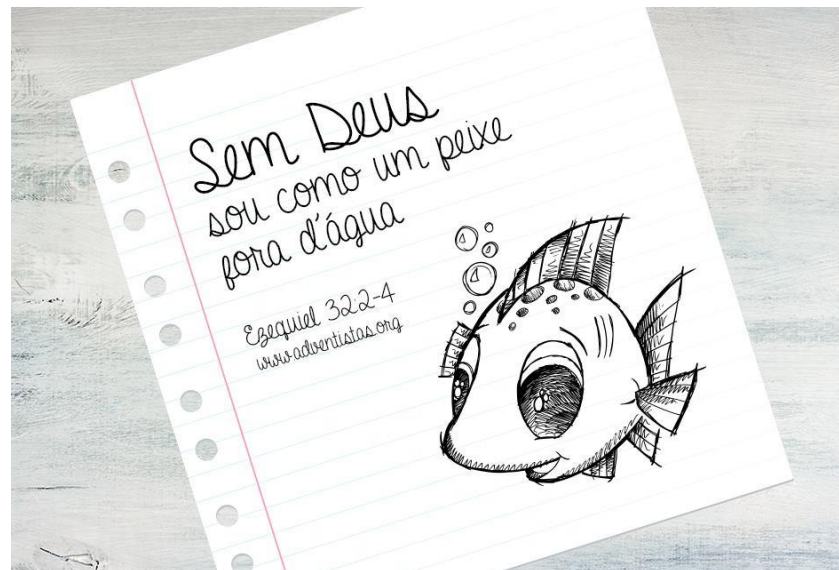 Sem Deus
sou como um peixe
fora d'água
Ezequiel 32:2-4
www.adventistas.org